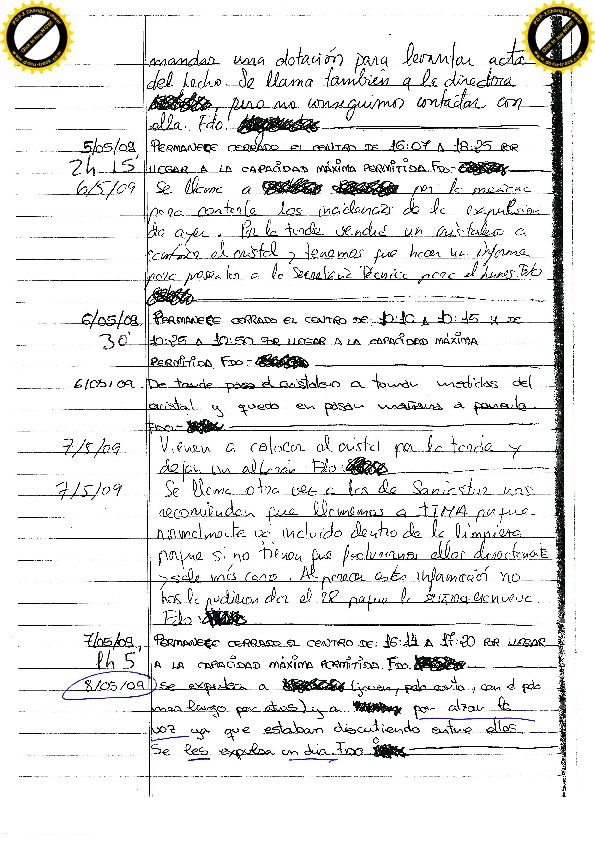 mandar una dotación para levantar acta
del hecho. Se llama también a la directora
, pero no conseguimos contactar con
ella. Fdo.
5/05/09 PERMANECE CERRADO EL CENTRO DE 16:07 A 18:25 POR
2h 15' LLEGAR A LA CAPACIDAD MÁXIMA PERMITIDA. FDO-
6/5/09 Se llama a por la mañana
para contarle los incidencias de la expulsión
de ayer. Por la tarde vendrá un cristalero a
el cristal y tenemos que hacer un informe
para pasarlo a la Secretaria Técnica para el lunes. Fdo
6/05/09 PERMANECE CERRADO EL CENTRO DE 10:10 A 10:15 Y DE
30' 10:25 A 10:50 POR LLEGAR A LA CAPACIDAD MÁXIMA
PERMITIDA. FDO-
6/05/09. De tarde pasa el cristalero a tomar medidas del
cristal y queda en pasar mañana a ponerlo
FDO-
7/5/09 Vienen a colocar el cristal por la tarde y
dejan un albarán Fdo:
7/5/09 Se llama otra vez a los de nos
recomiendan que llamemos a porque
normalmente va incluido dentro de la limpieza
porque si no tienen que ellos directamente
y sale más caro. Al parecer esta información no
nos la pudieron dar el 28 porque la
Fdo:
7/05/09, PERMANECE CERRADO EL CENTRO DE: 16:14 A 17:20 POR LLEGAR
1h 5 A LA CAPACIDAD MÁXIMA PERMITIDA. FDO.
8/05/09 Se expulsa a (joven, pelo corto, con el pelo
mas largo por atras) y a por alzar la
voz ya que estaban discutiendo entre ellos.
Se les expulsa un dia. FDO